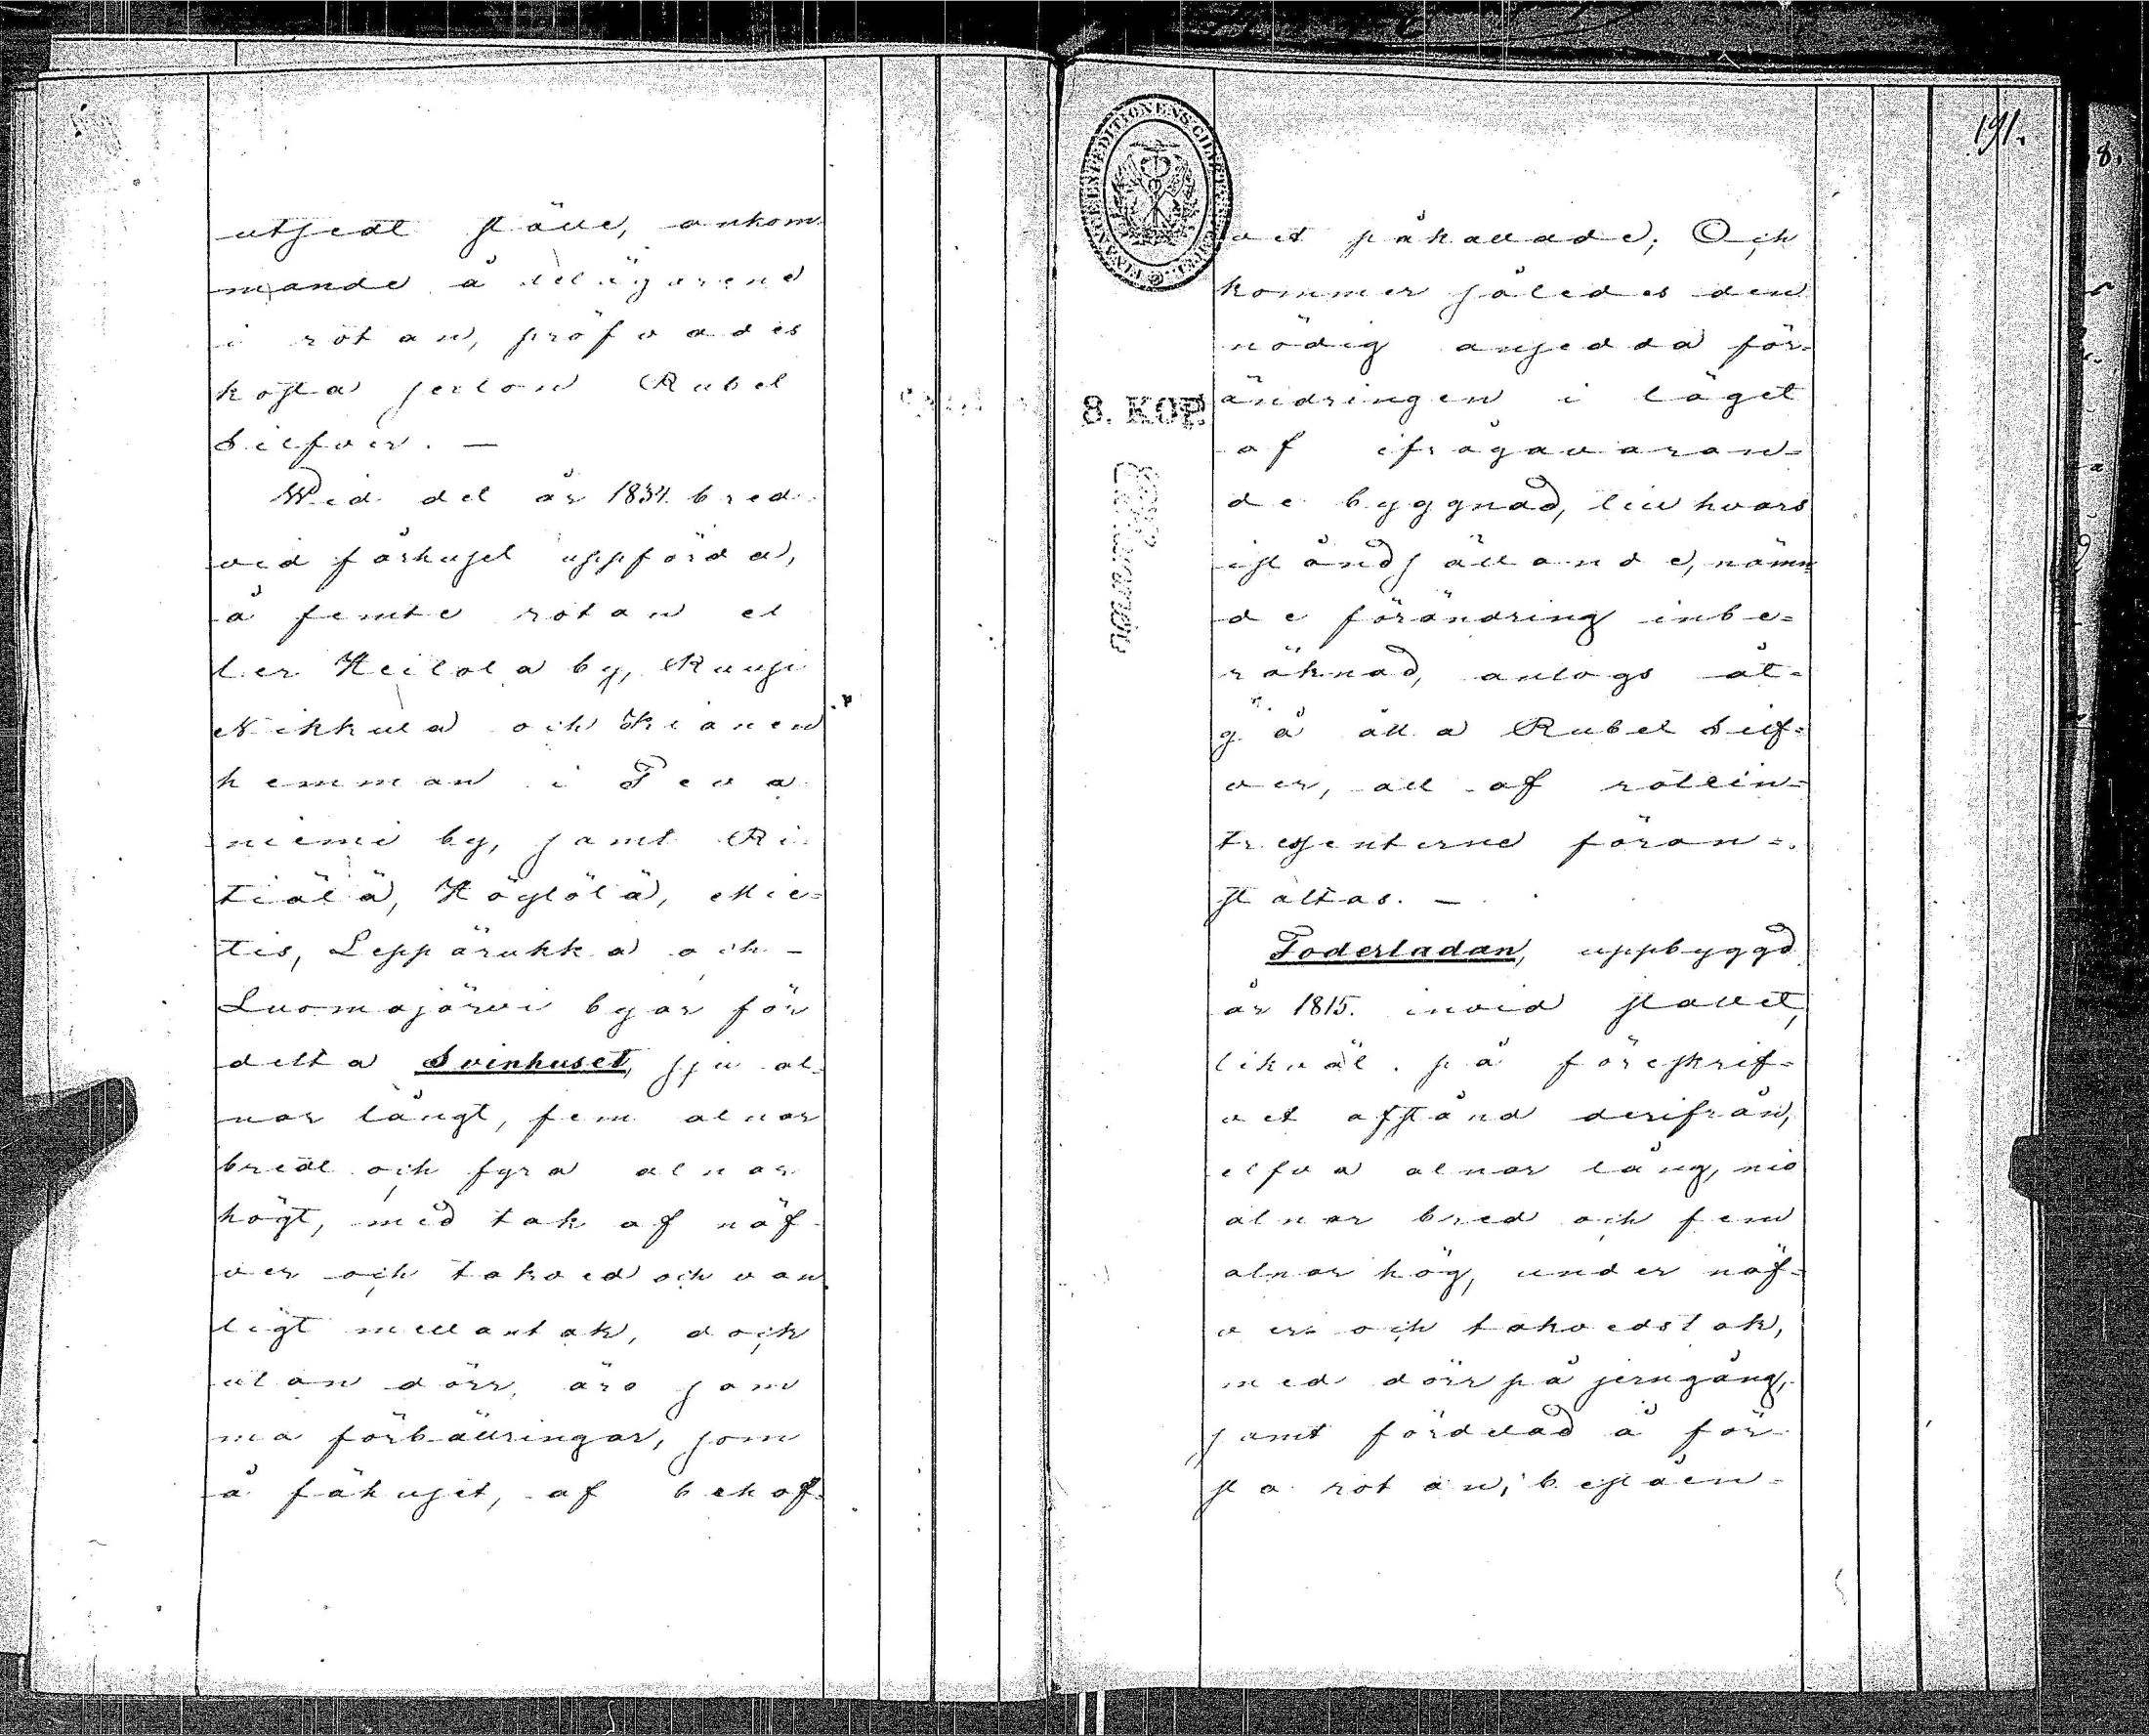 utsedt ställe, ankom-
mande å delägarene
i rotan, pröfvades
kosta sexton Rubel
Silfver. —
Wid det år 1834. bred-
vid fårhuset uppförda,
å femte rotan el-
ler Heilola by, Ruusi
Nikkula och Kianen
hemman i Teva-
niemi by, samt Ri-
tiälä, Höytölä, Mie-
tis, Leppärukka och —
Luomajärvi byar för
delta Svinhuset, sju al-
nar långt, fem alnar
bredt och fyra alnar
högt, med tak af näf-
ver och takved och van-
ligt mellantak, dock
utan dörr, äro sam-
ma förbättringar, som
å fähuset, af behof-
191.
8.
8. KOP.
vet påkallade; Och
kommer således den
nödig ansedda för-
ändringen i läget
af ifrågavaran-
de byggnad, till hvars
iståndsättande, nämn-
de förändring inbe-
räknad, antogs åt-
gå åtta Rubel Silf-
ver, att af rotein-
tressenterne föran-
staltas. —
Foderladan, uppbyggd
år 1815. invid stallet,
likväl på föreskrif-
vet afstånd derifrån,
elfva alnar lång, nio
alnar bred och fem
alnar hög, under näf-
ver och takvedstak,
med dörr på jerngång,
samt fördelad å för-
sta rotan, bestäen-